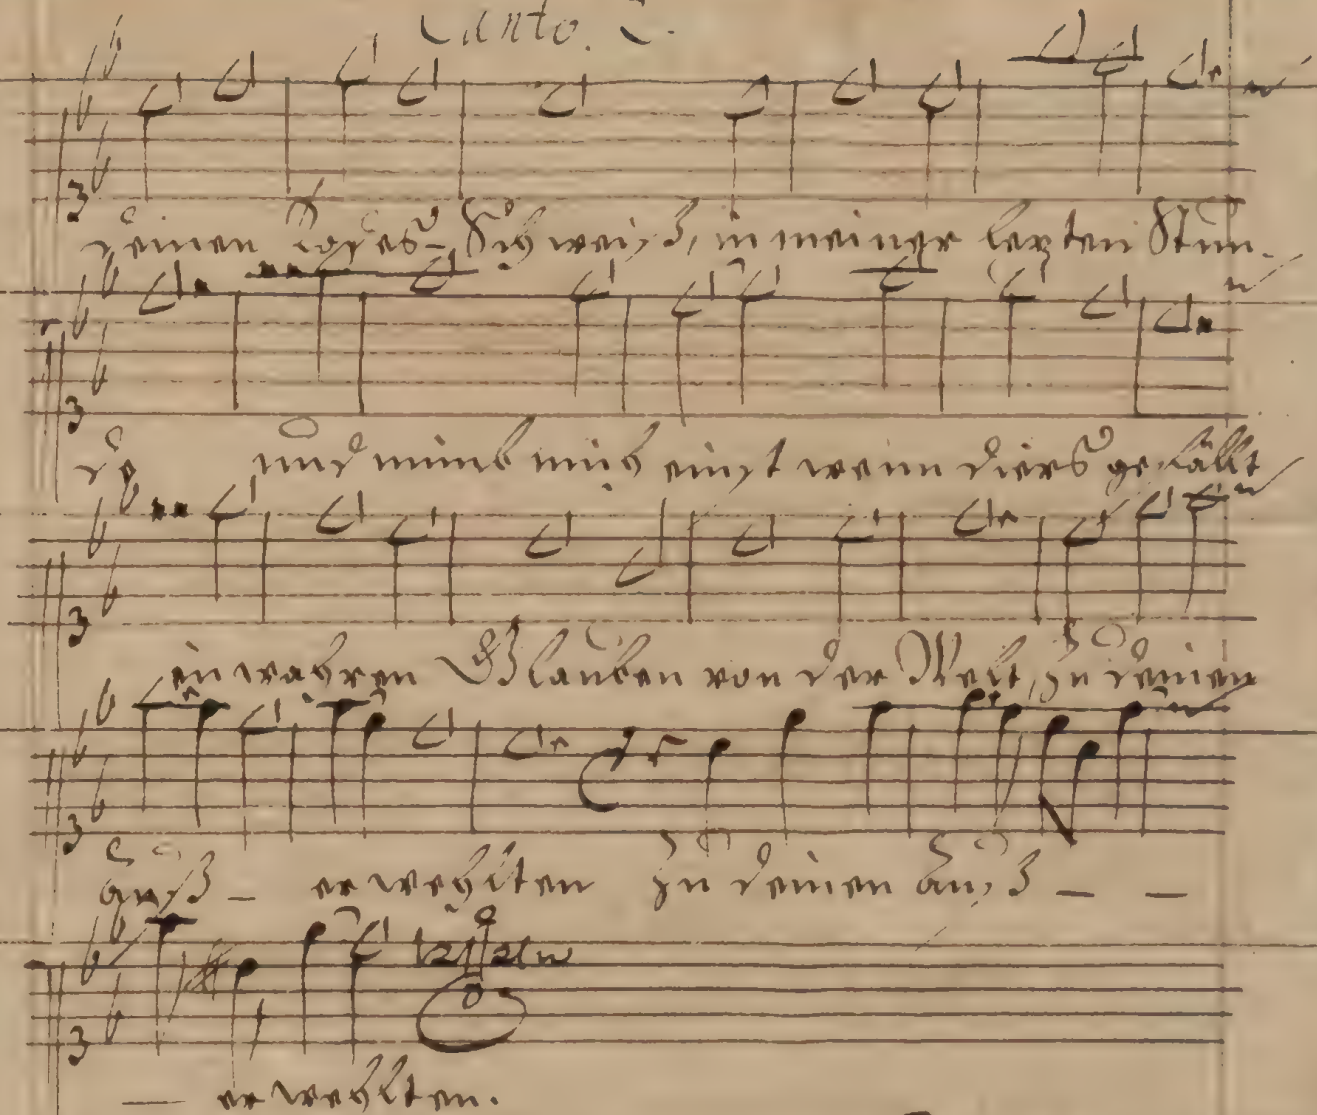 Canto. 2.
deinen Todes-Schweiß, in meiner lezten Stun-
de und nimb mich einst wenn dirs gefällt
in wahren Glauben von der Welt, zu deinen
auß- erwehlten zu deinen auß - -
- erwehlten.